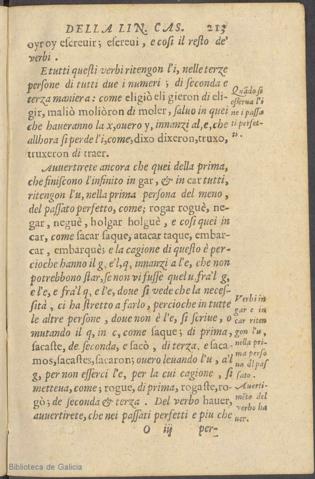 DELLA LIN. CAS. 213
oyr oy escreuir; escreui, e cosi il resto de'
verbi.
E tutti questi verbi ritengon l'i, nelle terze
persone di tutti due i numeri; di seconda e
terza maniera: come eligiò eligieron di eli-
gir, moliò molieron di moler, saluo in quei
che haueranno la x, ouero y, innanzi al, e, che
allhora si perde l'i, come, dixo dixeron, truxo,
truxeron di traer.
Quãdo si
osserua l'i
ne i passa
ti perfet-
ti.
Auuertirete ancora che quei della prima,
che finiscono l'infinito in gar, & in car tutti,
ritengon l'u, nella prima persona del meno,
del passato perfetto, come; rogar roguè, ne-
gar, neguè, holgar holguè, e cosi quei in
car, come sacar saque, atacar taque, embar-
car, embarquè; e la cagione di questo è per-
cioche hanno il g, e'l, q, innanzi a l'e, che non
potrebbono star, se non vi fusse quel u, fra'l g,
e l'e, e fra'l q, e l'e, doue si vede che la neces-
sità, ci ha stretto a farlo, percioche in tutte
le altre persone, doue non è l'e, si scriue, o
mutando il q, in c, come saque; di prima,
sacaste, de seconda, e sacò, di terza, e saca-
mos, sacastes, sacaron; ouero leuando l'u, a'l
g, per non esserci l'e, per la cui cagione, si
metteua, come; rogue, di prima, rogaste, ro-
gò; de seconda & terza. Del verbo hauer,
auuertirete, che nei passati perfetti e piu che
Verbi in
gar e in
car riten
gon l'u,
nella pri-
ma perso
na dl pas
sato.
Auerti-
mẽto del
verbo ha
uer.
O iij per-
Biblioteca de Galicia